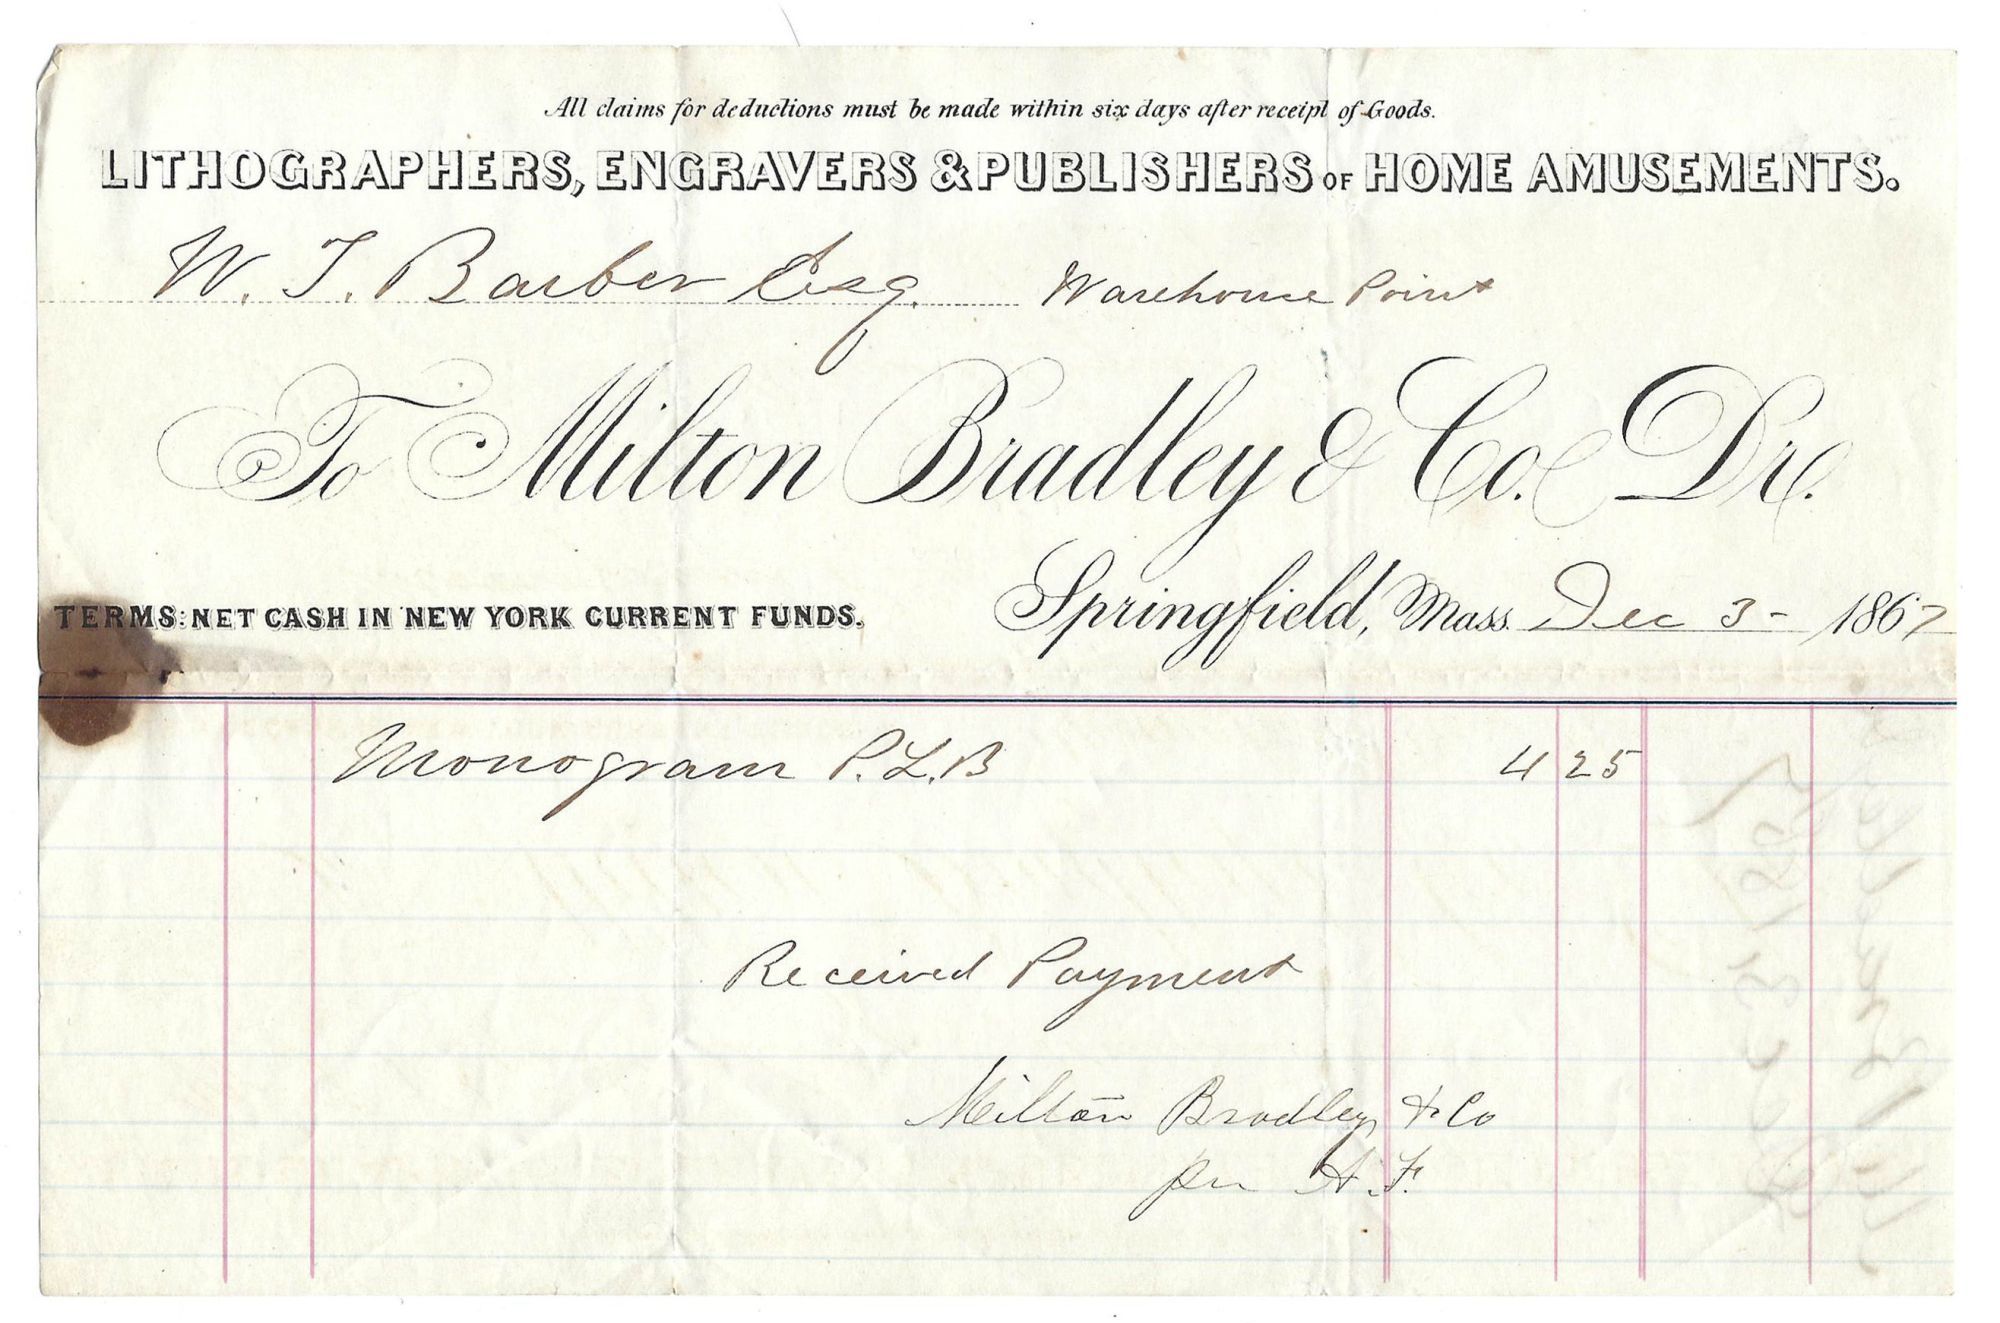 All claims for deductions must be made within six days after receipt of Goods.
LITHOGRAPHERS, ENGRAVERS & PUBLISHERS OF HOME AMUSEMENTS.
W. T. Barber Esq. Warehouse Point
To Milton Bradley & Co. Dr.
TERMS: NET CASH IN NEW YORK CURRENT FUNDS. Springfield, Mass. Dec 3- 1867
Monogram P.L.B 4 25
Received Payment
Milton Bradley & Co
per A.F.